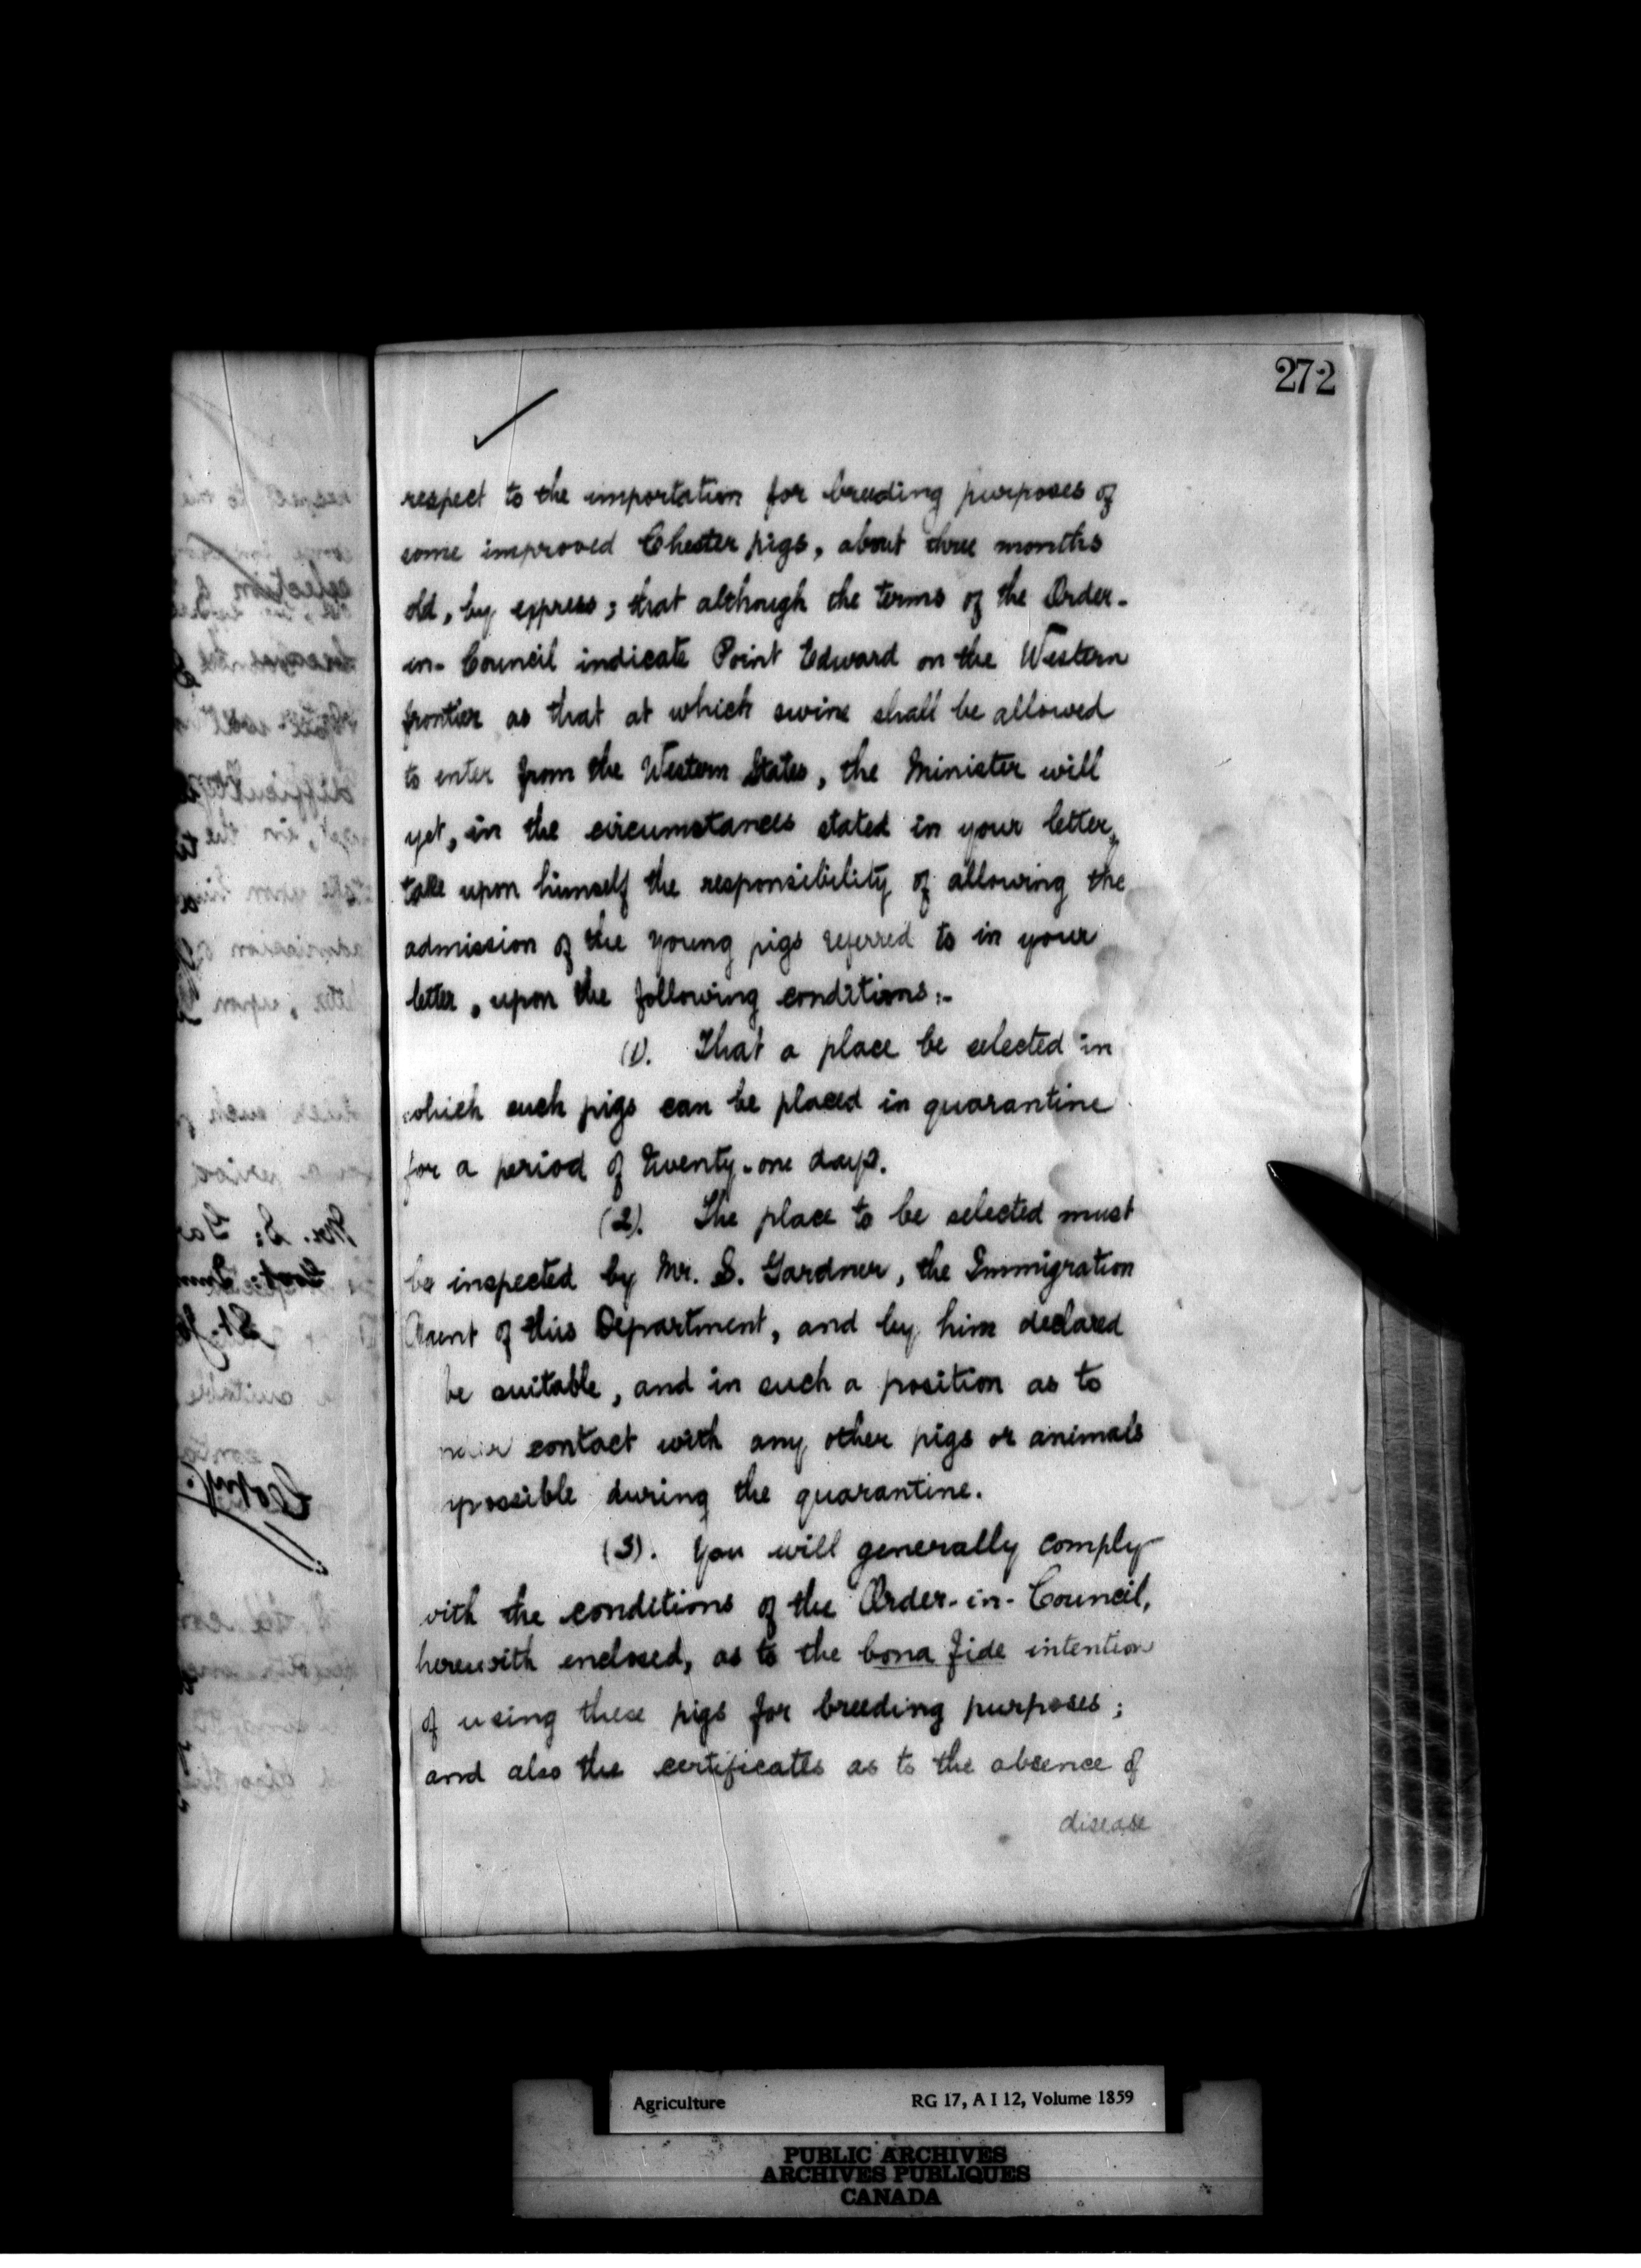 272
respect to the importation for breeding purposes of
some improved Chester pigs, about three months
old, by express; that although the terms of the Order-
in-Council indicate Point Edward on the Western
frontier as that at which swine shall be allowed
to enter from the Western States, the Minister will
yet, in the circumstances stated in your letter,
take upon himself the responsibility of allowing the
admission of the young pigs referred to in your
letter, upon the following conditions:-
(1). That a place be selected in
which such pigs can be placed in quarantine
for a period of twenty-one days.
(2). The place to be selected must
be inspected by Mr. S. Gardner, the Immigration
Agent of this Department, and by him declared
be suitable, and in such a position as to
contact with any other pigs or animals
possible during the quarantine.
(3). You will generally comply
with the conditions of the Order-in-Council,
herewith enclosed, as to the bona fide intention
of using these pigs for breeding purposes;
and also the certificates as to the absence of
disease
Agriculture RG 17, A I 12, Volume 1859
PUBLIC ARCHIVES
ARCHIVES PUBLIQUES
CANADA